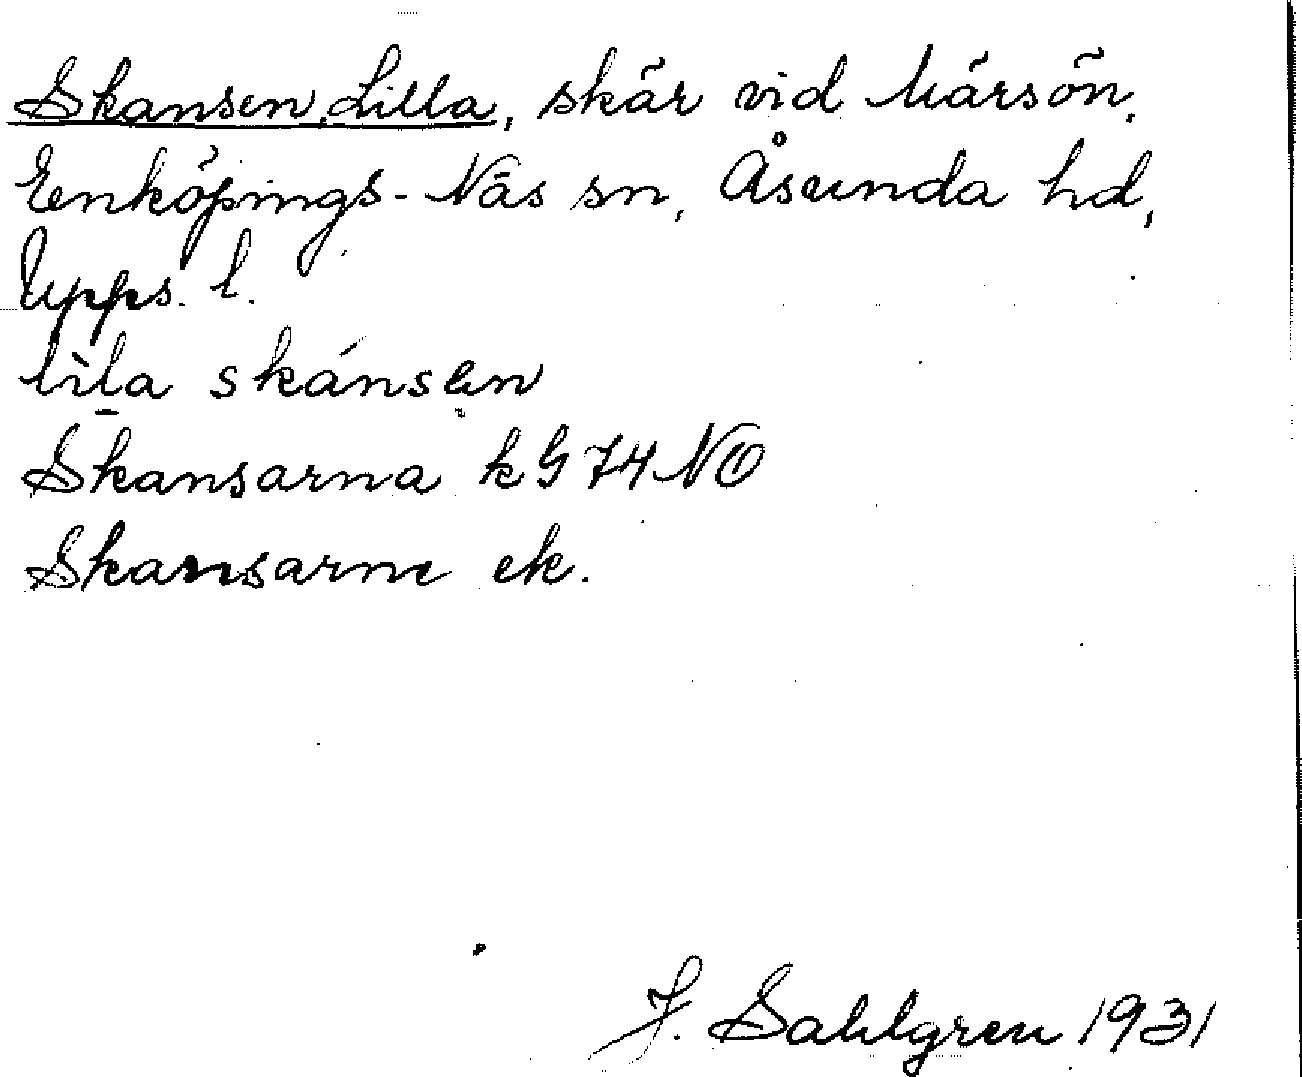 Skansen, Lilla, skär vid Märsön,
Enköpings-Näs sn, Åsunda hd,
Upps. l.
lìla skánsen
Skansarna kG 74 NO
Skansarne ek.
J. Sahlgren 1931